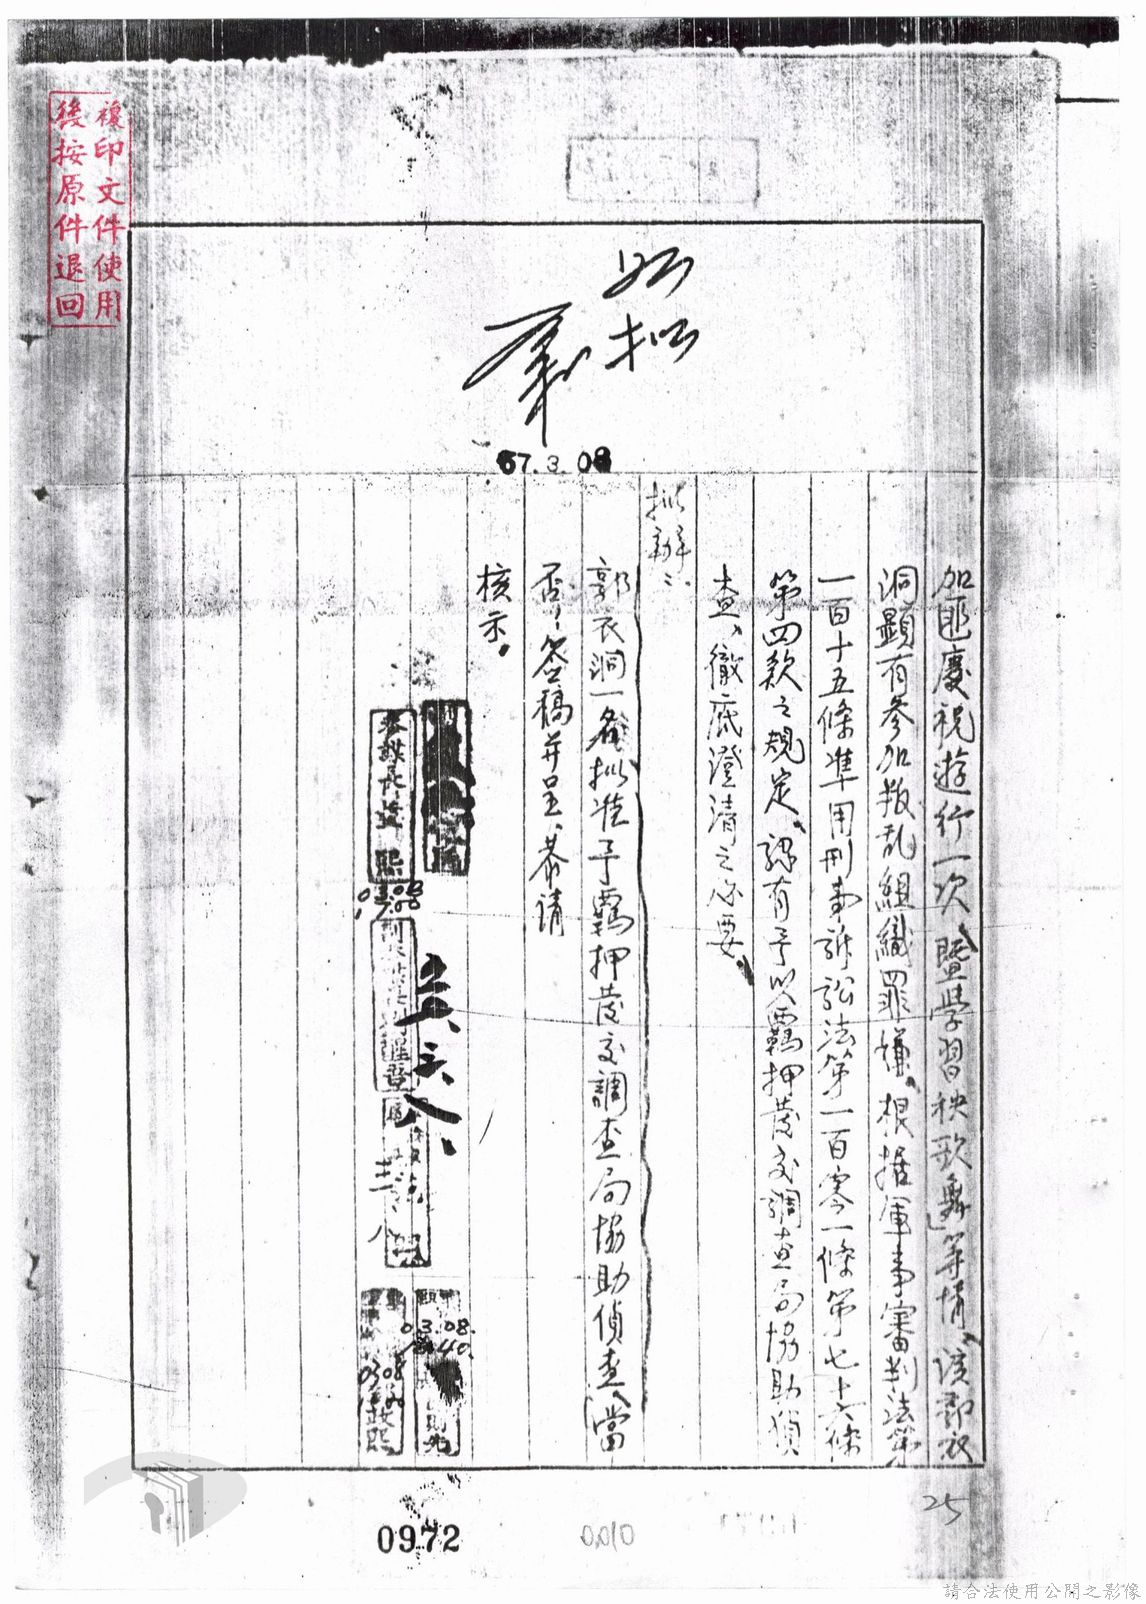 複印文件使用
後按原件退回
如擬
57.3.08
加匪慶祝遊行一次、暨學習秧歌舞」等情、該郭衣
洞顯有參加叛乱組織罪嫌、根据軍事審判法第
一百十五條準用刑事訴訟法第一百零一條第七十六條
第四款之規定、認有予以羈押發交調查局協助偵
查、徹底澄清之必要、
擬辦：
郭衣洞一名擬准予羈押發交調查局協助偵查、當
否、簽稿并呈、恭請
核示。
0972
0010
25
請合法使用公開之影像